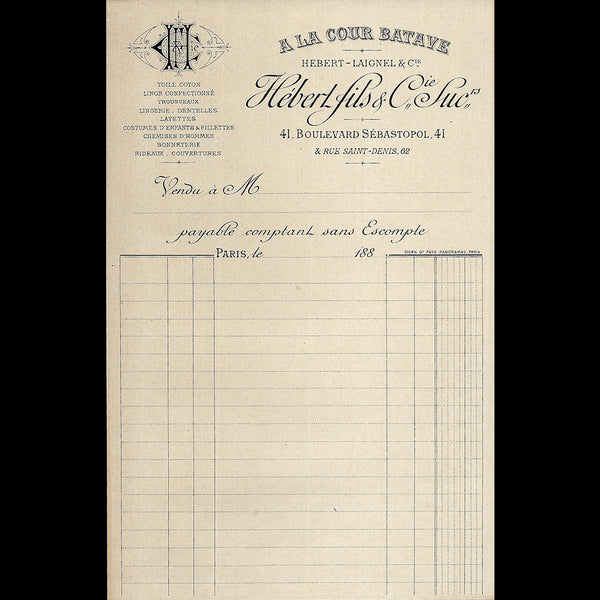 & Cie
TOILE, COTON
LINGE CONFECTIONNÉ
TROUSSEAUX
LINGERIE, DENTELLES
LAYETTES
COSTUMES D'ENFANTS & FILLETTES
CHEMISES D'HOMMES
BONNETERIE
RIDEAUX, COUVERTURES
A LA COUR BATAVE
HEBERT-LAIGNEL & Cie
Hébert fils & Cie Sucrs
41, BOULEVARD SÉBASTOPOL, 41
& RUE SAINT-DENIS, 62
Vendu à M
payable comptant sans Escompte
PARIS, le 188
PANORAMAS, PARIS